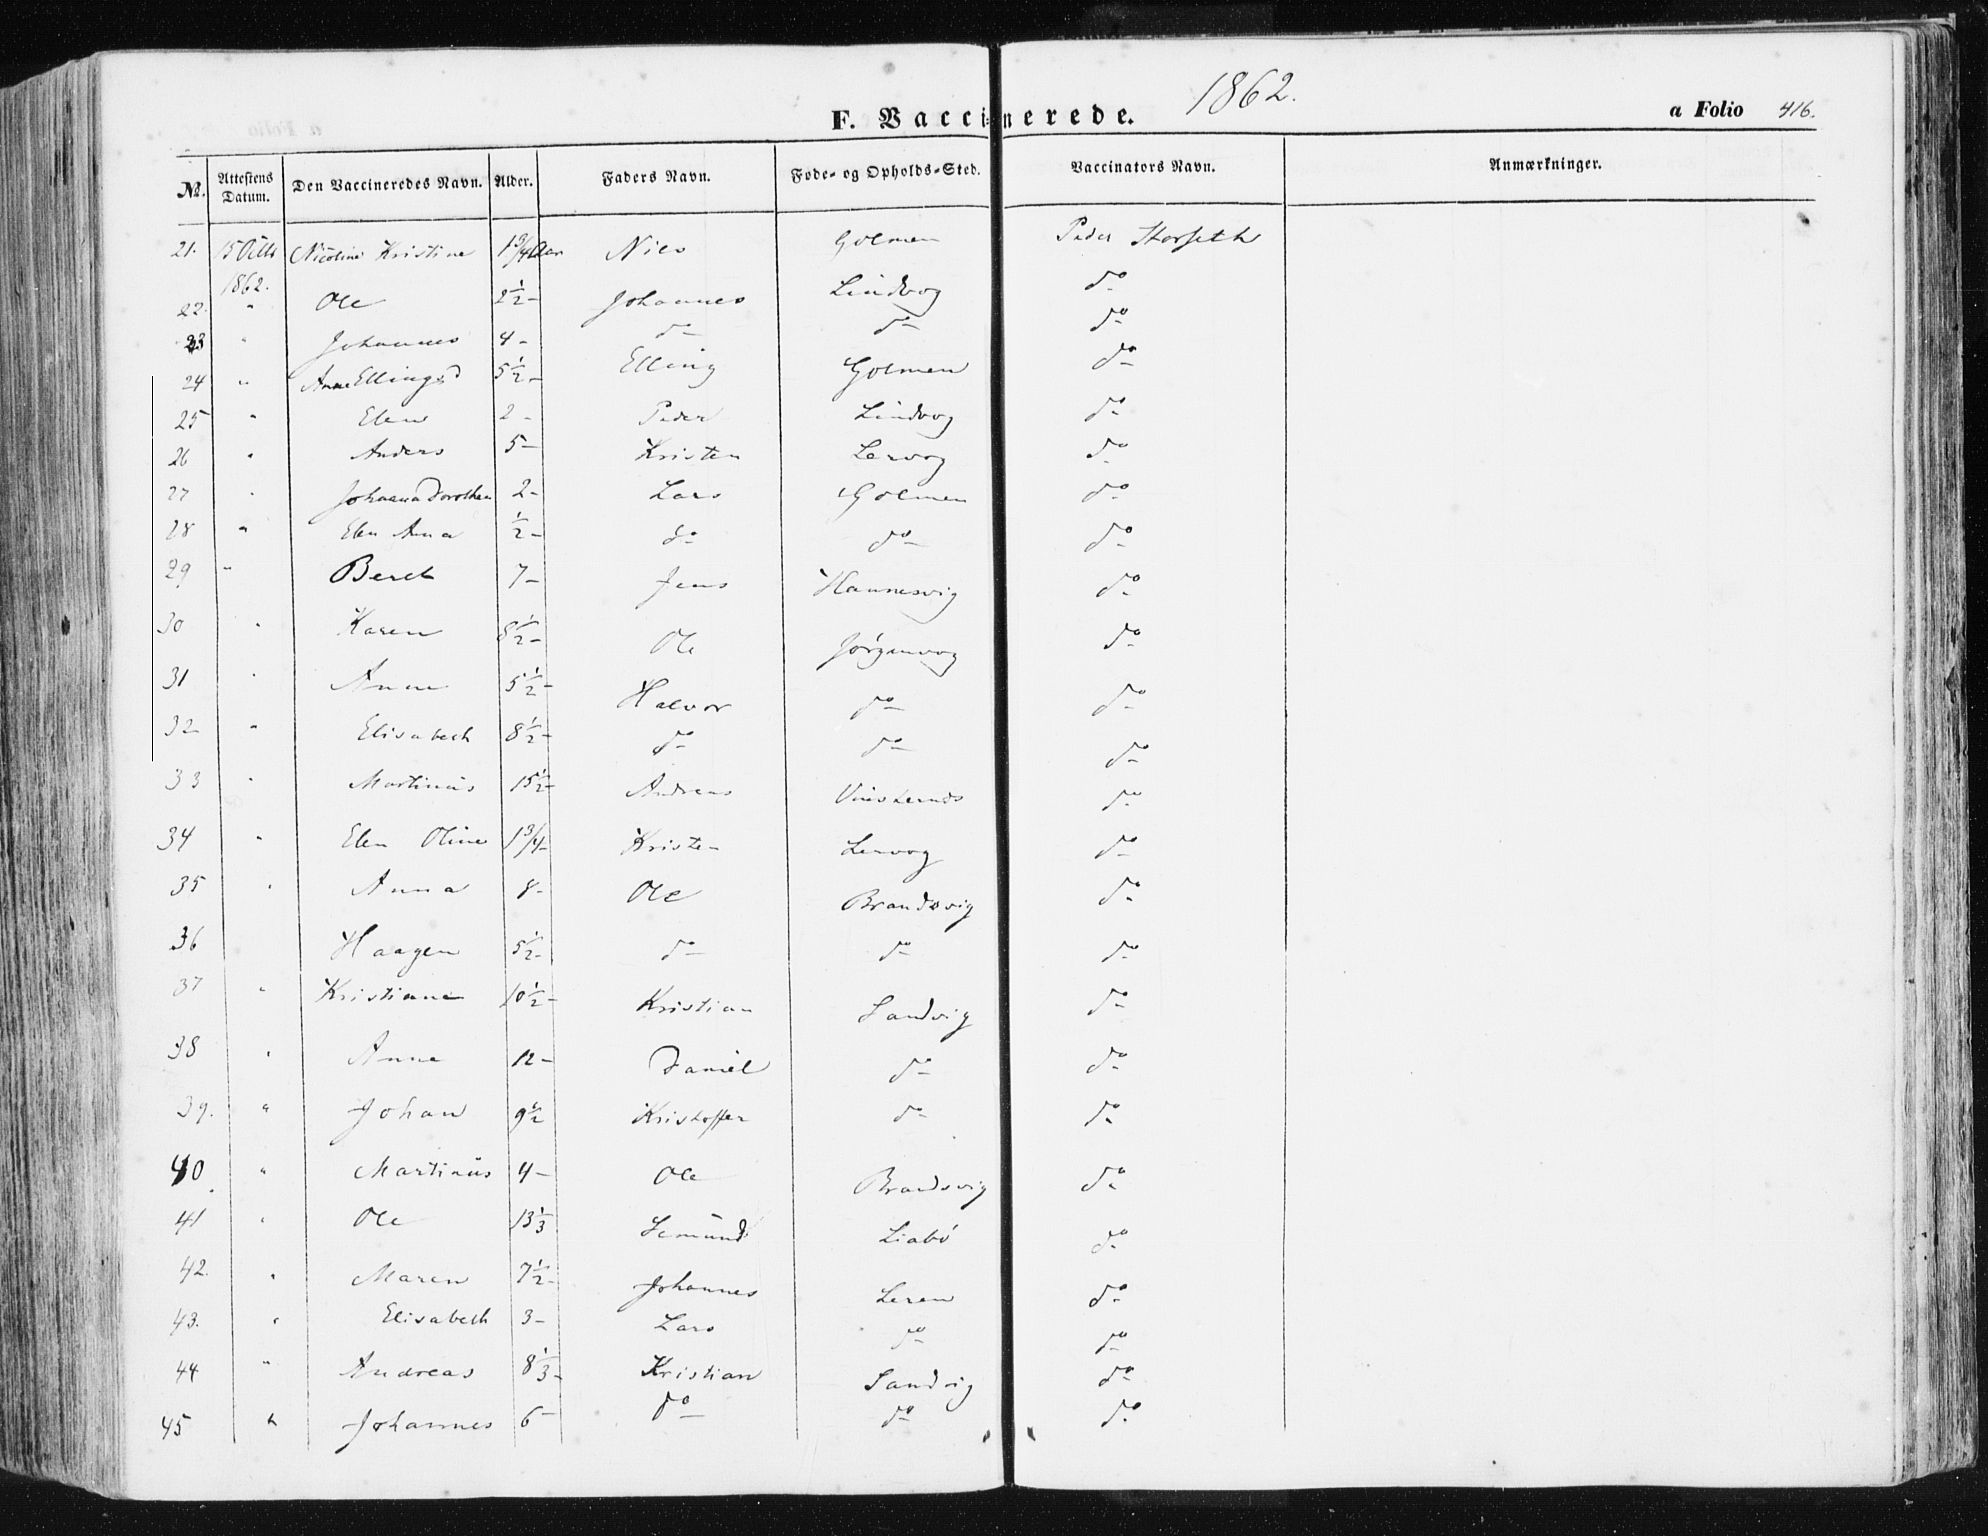 1862.
F. Vaccinerede.
a Folio 416.
№. Attestens Datum. Den Vaccineredes Navn. Alder. Faders Navn. Føde- og Opholds-Sted. Vaccinators Navn. Anmærkninger.
21. 15 1862. Nicoline Kristine 1 3/4 Aar Nils Golmen Peder Horseth
22. " Ole 2 1/2 - Johannes Lindvog do
23 " Johannes 4 - do do do
24 " Anne Ellingsd 5 1/2 - Elling Golmen do
25 " Elen 2 - Peder Lindvog do
26 " Anders 5 - Kristen Lervog do
27 " Johanna Dorothea 2 - Lars Golmen do
28 " Elen Anna 1/2 - do do do
29 " Beret 7 - Jens Hannesvig do
30 " Karen 8 1/2 - Ole Jørgenvog do
31 " Anne 5 1/2 - Halvor do do
32 " Elisabeth 8 1/2 - do do do
33 " Martinus 15 1/2 - Andreas do
34 " Elen Oline 1 3/4 - Kristen Lervog do
35 " Anna 8 - Ole Brandsvig do
36 Haagen 5 1/2 - do do do
37 " Kristiane 10 1/2 - Kristian Sandvig do
38 " Anne 12 - Daniel do do
39. " Johan 9 1/2 Kristoffer do do
40 " Martinus 4 - Ole Brandsvig do
41 " Ole 13 1/3 Semund Liabø do
42. " Maren 7 1/2 - Johannes Leren do
43. " Elisabeth 3 - Lars do do
44 " Andreas 8 1/3 - Kristian Sandvig do
45 " Johannes 6 - do do do